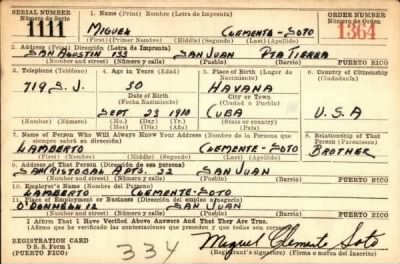 SERIAL NUMBER 1. Name (Print) Nombre (Letra de Imprenta) ORDER NUMBER
Número de Serie Número de Orden
1111 MIGUEL CLEMENTE-SOTO 1364
(First) (Primer Nombre) (Middle) (Segundo) (Last) (Apellido)
2. Address (Print) Dirección (Letra de Imprenta)
SAN AGUSTIN 133 SAN JUAN PTA TIERRA
(Number and street) (Número y calle) (Town) (Pueblo) PUERTO RICO
3. Telephone (Teléfono) 4. Age in Years (Edad) 5. Place of Birth (Lugar de Nacimiento) 6. Country of Citizenship (Ciudadanía)
719 S.J. 30 HAVANA
Date of Birth City or Town
(Fecha Nacimiento) (Ciudad o Pueblo)
SEPT 23 1910 CUBA U.S.A
(Mo.) (Day) (Yr.) State or Country
(Mes) (Día) (Año) (Estado o país)
7. Name of Person Who Will Always Know Your Address (Nombre de la Persona que siempre sabrá su dirección) 8. Relationship of That Person (Parentesco)
LAMBERTO CLEMENTE-SOTO BROTHER
(First) (Nombre) (Middle) (Segundo) (Last) (Apellido)
9. Address of That Person (Dirección de esa persona)
SAN CRISTOBAL APTS. 22 SAN JUAN
(Number and street) (Número y calle) (Town) (Pueblo) PUERTO RICO
10. Employer's Name (Nombre del Patrono)
LAMBERTO CLEMENTE-SOTO
11. Place of Employment or Business (Dirección del empleo o negocio)
O'DONNELL 12 SAN JUAN
(Number and street) (Número y calle) (Town) (Pueblo) PUERTO RICO
I Affirm That I Have Verified Above Answers And That They Are True.
Afirmo que he verificado las contestaciones que preceden y que todas son
REGISTRATION CARD
D. S. S. Form 1
(PUERTO RICO)
334 Miguel Clemente Soto
(Registrant's signature) (Firma o marca del Inscrito)